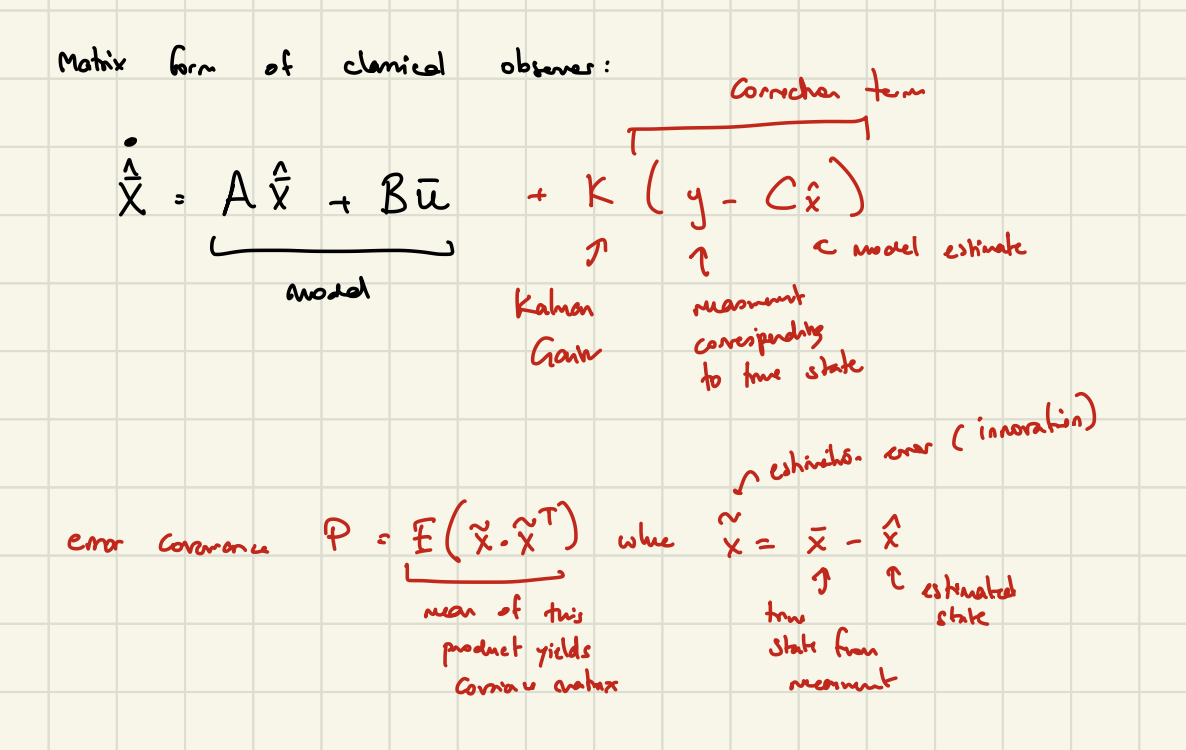 Matrix form of classical observer:
Correction term
\dot{\hat{\bar{x}}} = A \hat{\bar{x}} + B \bar{u} + K ( y - C \hat{x} )
model
Kalman
Gain
measurement
corresponding
to true state
model estimate
estimation error (innovation)
error covariance P = E( \tilde{x} . \tilde{x}^T ) where \tilde{x} = \bar{x} - \hat{x}
mean of this
product yields
matrix
true
state from
measurement
estimated
state